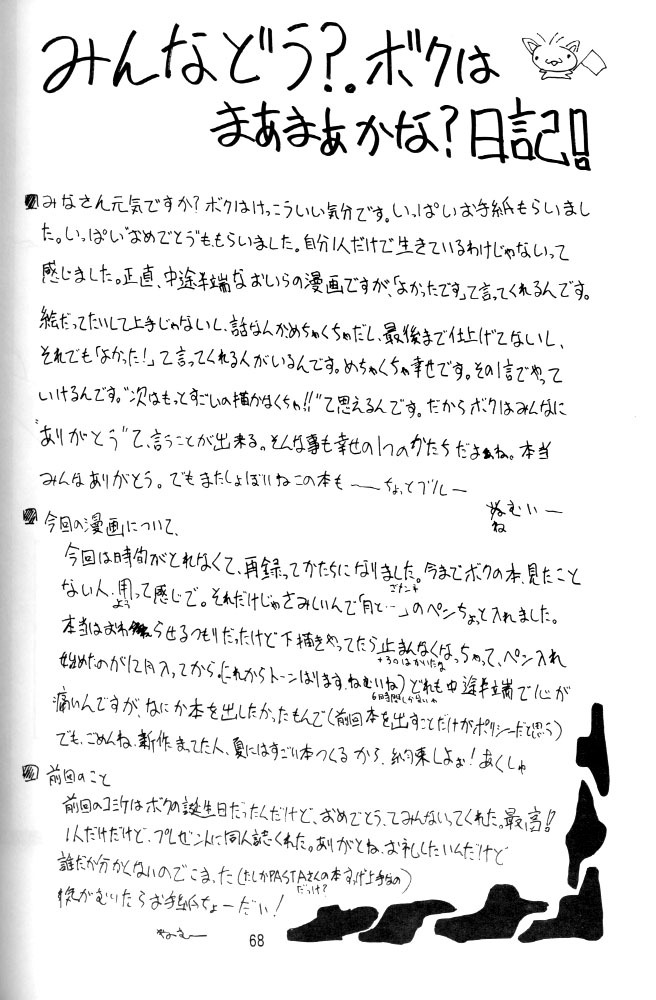 みんなどう?。ボクは
まあまあかな?日記!!
みなさん元気ですか?ボクはけっこういい気分です。いっぱいお手紙もらいまし
た。いっぱい“おめでとう”ももらいました。自分1人だけで生きているわけじゃないって
感じました。正直、中途半端なおいらの漫画ですが、「よかったです」て言ってくれるんです。
絵だってたいして上手じゃないし、話なんかめちゃくちゃだし、最後まで仕上げてないし、
それでも「よかった!」て言ってくれる人がいるんです。めちゃくちゃ幸せです。その1言でやって
いけるんです。“次はもっとすごいの描かなくちゃ!!”て思えるんです。だからボクはみんなに
“ありがとう”て、言うことが出来る。そんな事も幸せの1つのかたちだよぉね。本当
みんなありがとう。でもまたしょぼいねこの本も ― ちょっとブルー
ねむいー
ね
今回の漫画について、
今回は時間がとれなくて、再録ってかたちになりました。今までボクの本、見たこと
ない人、用って感じで。それだけじゃさみしいんで「月と…」のペンちょっと入れました。
よう
本当はおわらせるつもりだったけど下描きやってたら止まんなくなっちゃって、ペン入れ
+30はかいたな
始めたのが12月入ってから。(これからトーンはります、ねむいね)どれも中途半端で心が
6日時間しかないや
痛いんですが、なにか本を出したかったもんで(前回本を出すことだけがポリシーだと思う)
でも、ごめんね、新作まってた人、夏にはすごい本つくるから、約束しよぉ!あくしゅ
前回のこと
前回のコミケはボクの誕生日だったんだけど、おめでとう、てみんないってくれた。最高!!
1人だけだけど、プレゼントに同人誌くれた。ありがとね、お礼したいんだけど
誰だか分かんないのでこまった(たしかPASTAさんの本すっげ上手なの)
だっけ?
気がむいたらお手紙ちょーだい!
68